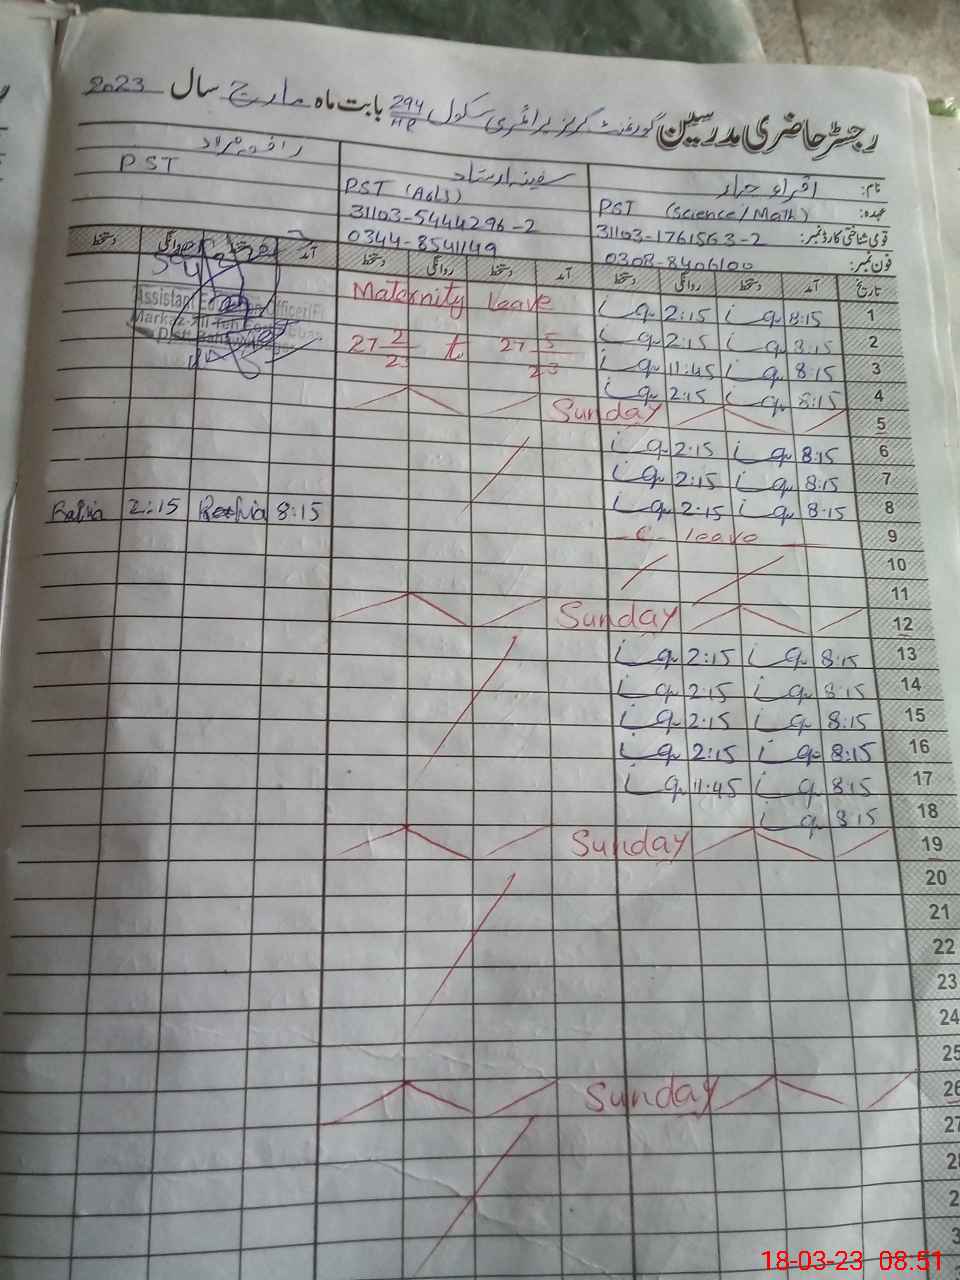 رجسٹر حاضری مدرسین گورنمنٹ گرلز پرائمری سکول 294/HR بابت ماہ مارچ سال 2023
نام: اقراء سفینہ ارشاد
عہدہ: PST (Science/Math) PST (Adls) PST
قومی شناختی کارڈ نمبر: 31103-1761563-2 31103-5444296-2
فون نمبر: 0308-8406100 0344-8541149
تاریخ آمد دستخط روانگی دستخط آمد دستخط روانگی دستخط آمد دستخط روانگی دستخط
1 8:15 2:15 Maternity leave
2 8:15 2:15 27 2/23 to 27 5/23
3 8:15 11:45
4 8:15 2:15
5 Sunday
6 8:15 2:15
7 8:15 2:15
8 8:15 2:15 8:15 2:15
9 C leave
10
11
12 Sunday
13 8:15 2:15
14 8:15 2:15
15 8:15 2:15
16 8:15 2:15
17 8:15 11:45
18 8:15
19 Sunday
20
21
22
23
24
25
26 Sunday
27
Assistant Education Officer
Markaz
18-03-23 08:51